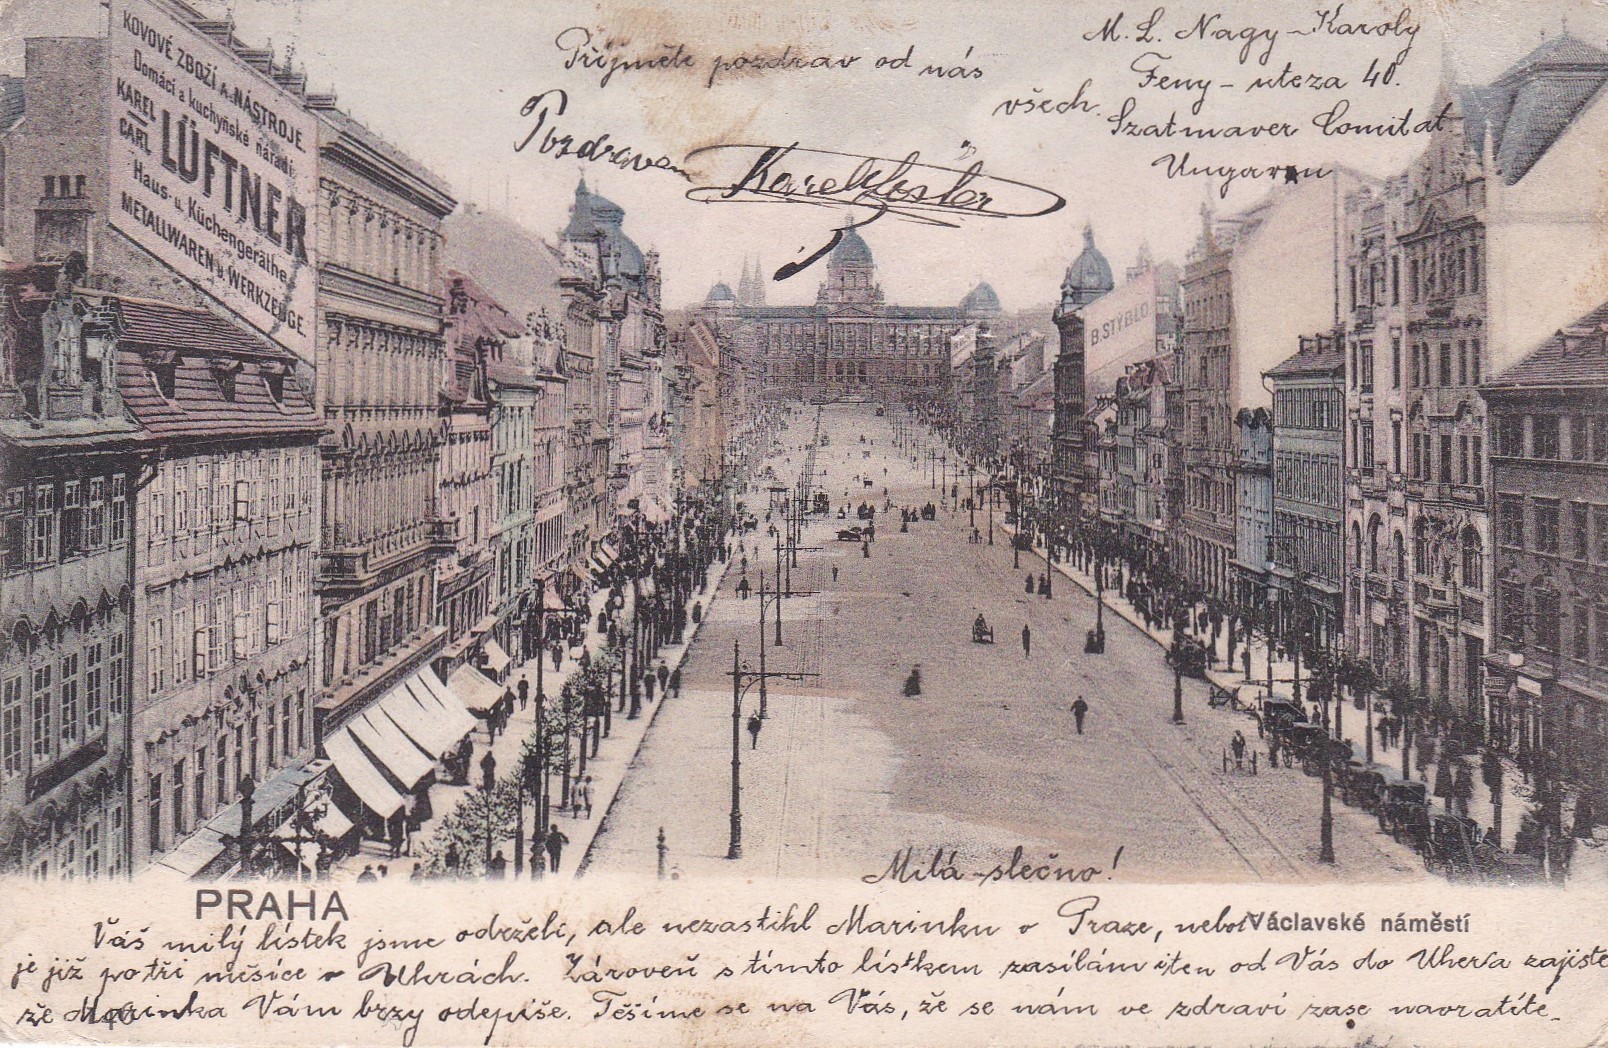 KOVOVÉ ZBOŽÍ A NÁSTROJE.
Domácí a kuchyňské nářadí
KAREL
CARL
LÜFTNER
Haus- u. Küchengeräthe
METALLWAREN u. WERKZEUGE.
Přijměte pozdrav od nás
všech.
Pozdraven
Karel
M. L. Nagy-Karoly
Feny-uteza 40.
Szatmaver Comitat
Ungarn
B. STÝBLO
Milá slečno!
PRAHA
Václavské náměstí
Váš milý lístek jsme održeli, ale nezastihl Marinku v Praze, neboť
je již po tři měsíce v Uhrách. Zároveň s tímto lístkem zasílám i ten od Vás do Uher a zajisté
že Marinka Vám brzy odepíše. Těšíme se na Vás, že se nám ve zdraví zase navrátíte.